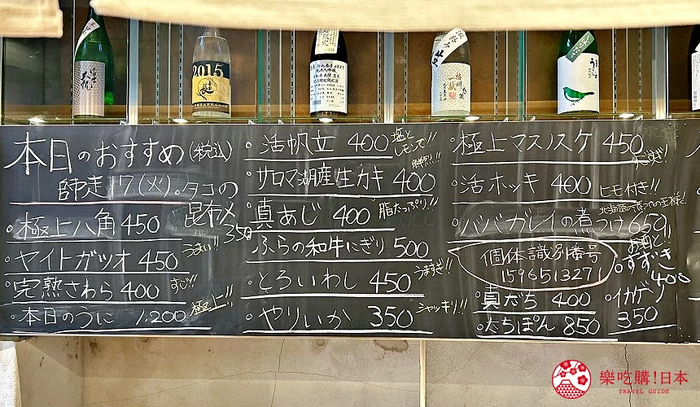 2015
本日のおすすめ(税込)
師走17(火)
・タコの昆布〆 350
・極上八角 450 うまい!!
・ヤイトガツオ 450
・完熟さわら 400 すご!!
・本日のうに 1,200 極上!!
・活帆立 400 塩とレモンで!!
・サロマ湖産生カキ 400
・真あじ 400 脂たっぷり!!
・ふらの和牛にぎり 500
・とろいわし 450 うますぎ!!
・やりいか 350 シャッキリ!!
・極上マスノスケ 450
・活ホッキ 400 ヒモ付き!!
・ババガレイの煮つけ 650
個体識別番号
1596513271
・真だち 400
・たちぽん 850
・すずき 400
・イカゲソ 350
樂吃購!日本
TRAVEL GUIDE